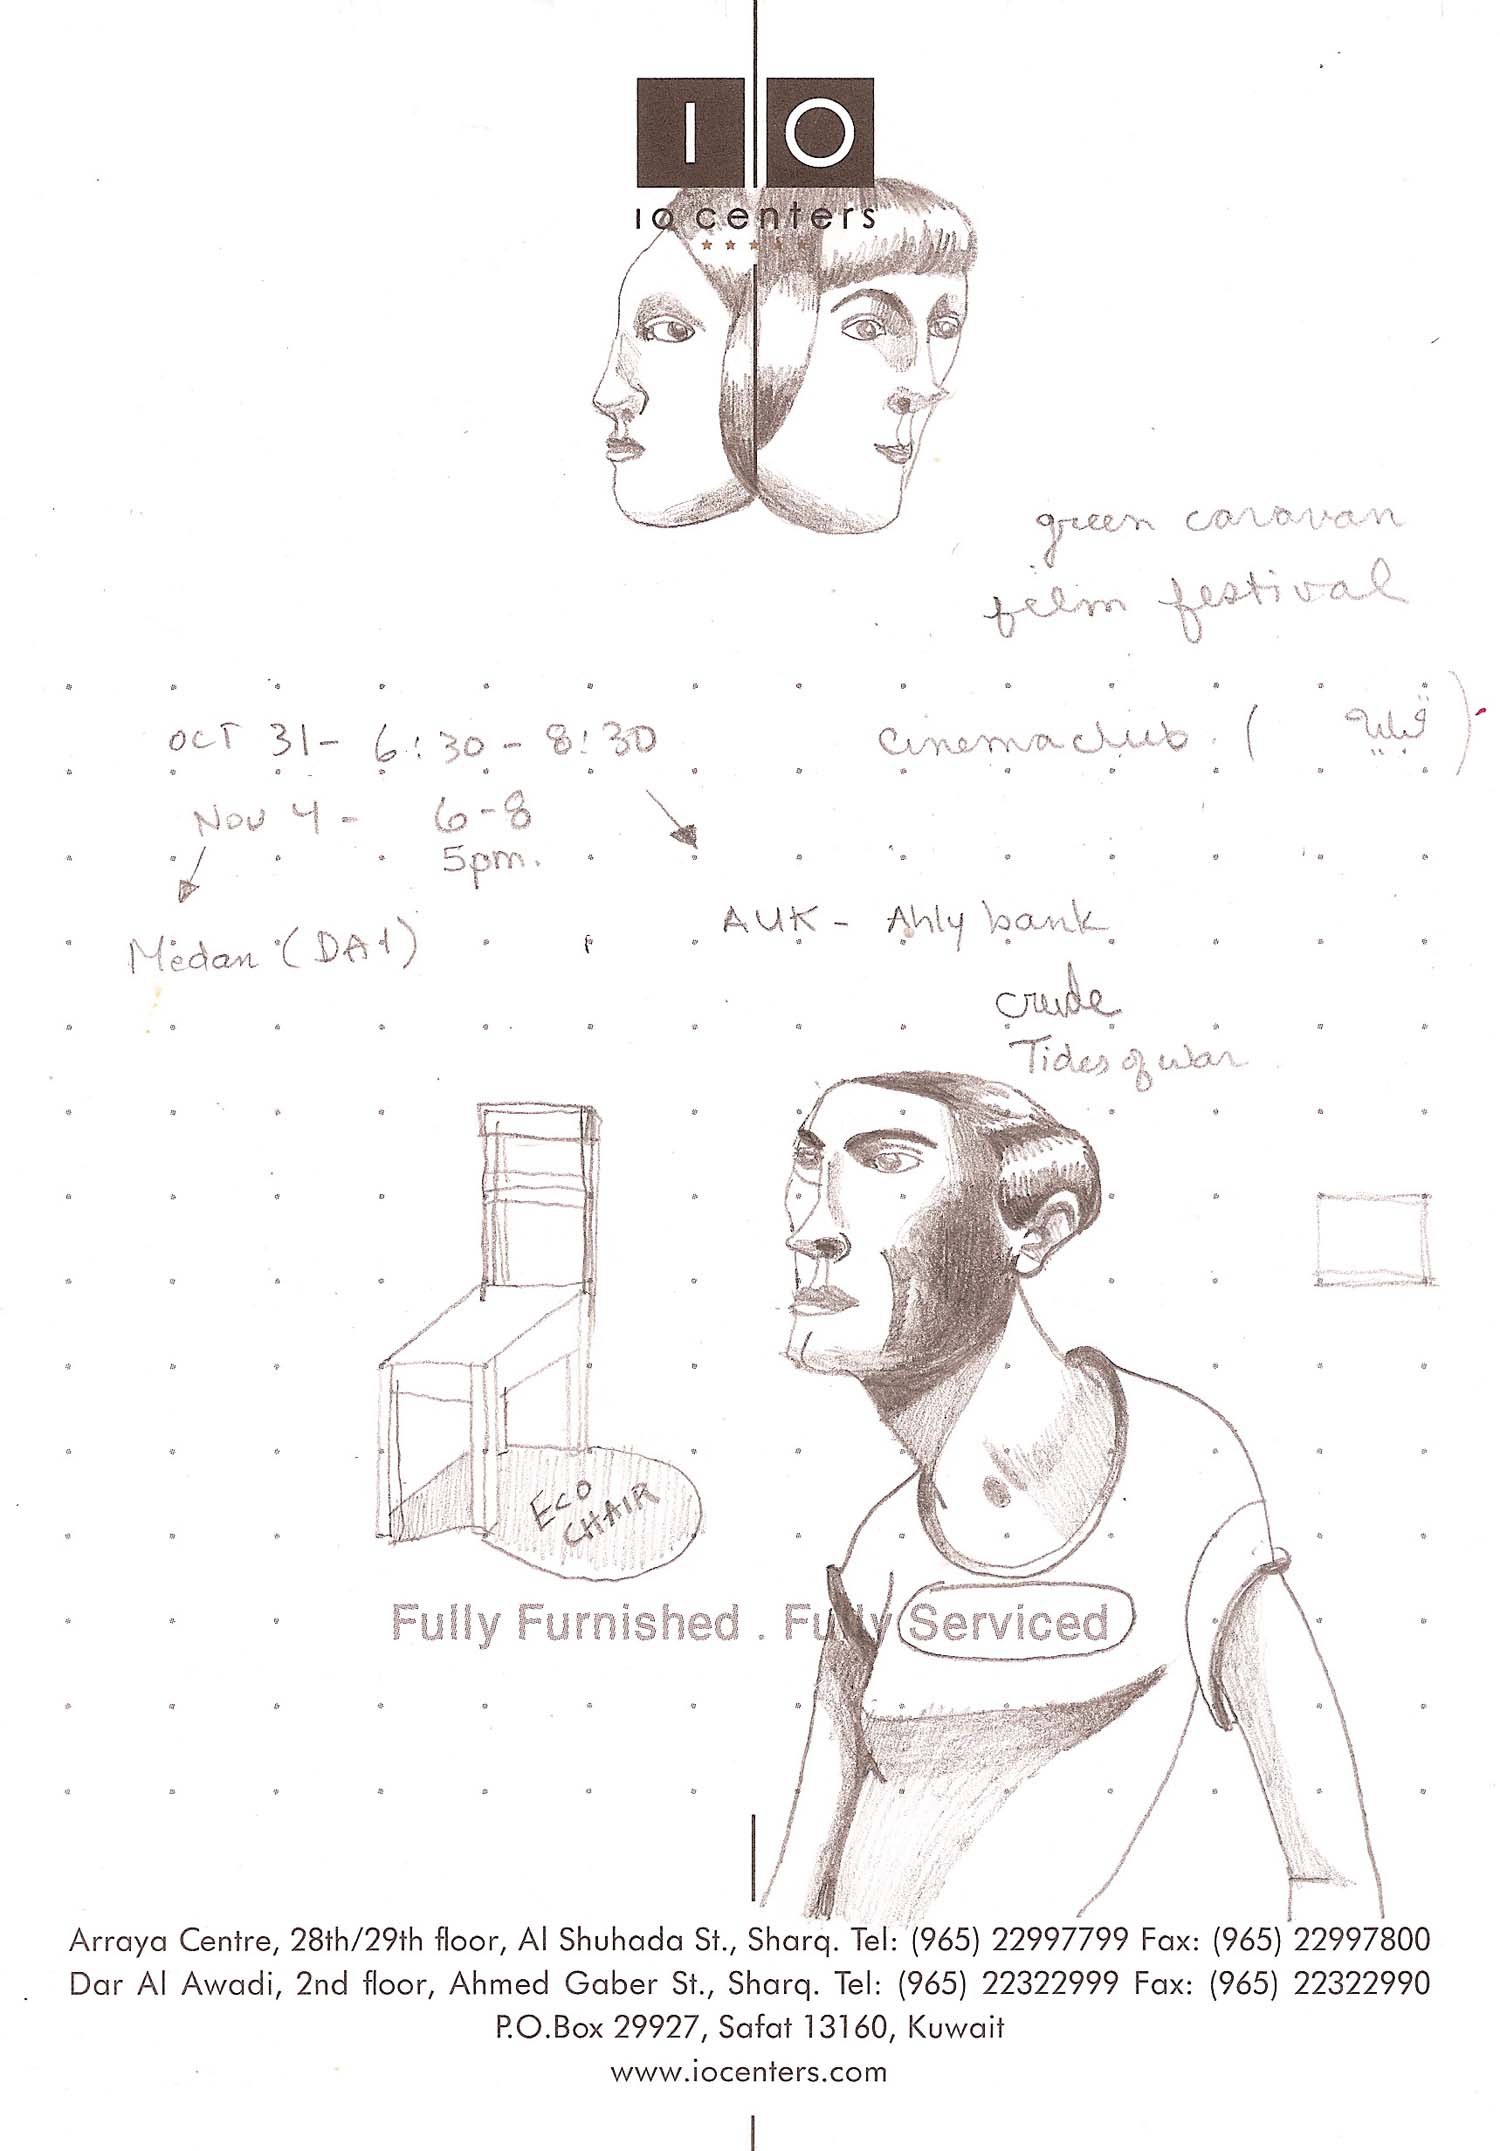 IO
io centers
green caravan
film festival
OCT 31 - 6:30 - 8:30
cinema club. (          )
Nov 4 - 6-8
5pm.
Medan (DAI)
AUK - Ahly bank
crude
Tides of war
ECO
CHAIR
Fully Furnished . Fully Serviced
Arraya Centre, 28th/29th floor, Al Shuhada St., Sharq. Tel: (965) 22997799 Fax: (965) 22997800
Dar Al Awadi, 2nd floor, Ahmed Gaber St., Sharq. Tel: (965) 22322999 Fax: (965) 22322990
P.O.Box 29927, Safat 13160, Kuwait
www.iocenters.com